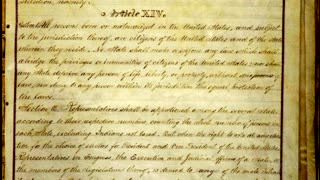 Article XIV.
Section 1. All persons born or naturalized in the United States, and subject
to the jurisdiction thereof, are citizens of the United States and of the
wherein they reside. No State shall make or enforce any law which shall
abridge the privileges or immunities of citizens of the United States; nor shall
any State deprive any person of life, liberty, or property, without due process
law, nor deny to any person within its jurisdiction the equal protection
of the laws.
Section 2. Representatives shall be apportioned among the several States
according to their respective numbers, counting the whole number of persons in
each State, excluding Indians not taxed. But when the right to vote at any election
for the choice of electors for President and Vice President of the United States,
Representatives in Congress, the Executive and Judicial officers of a State, or
the members of the Legislature thereof, is denied to any of the male inhabitants